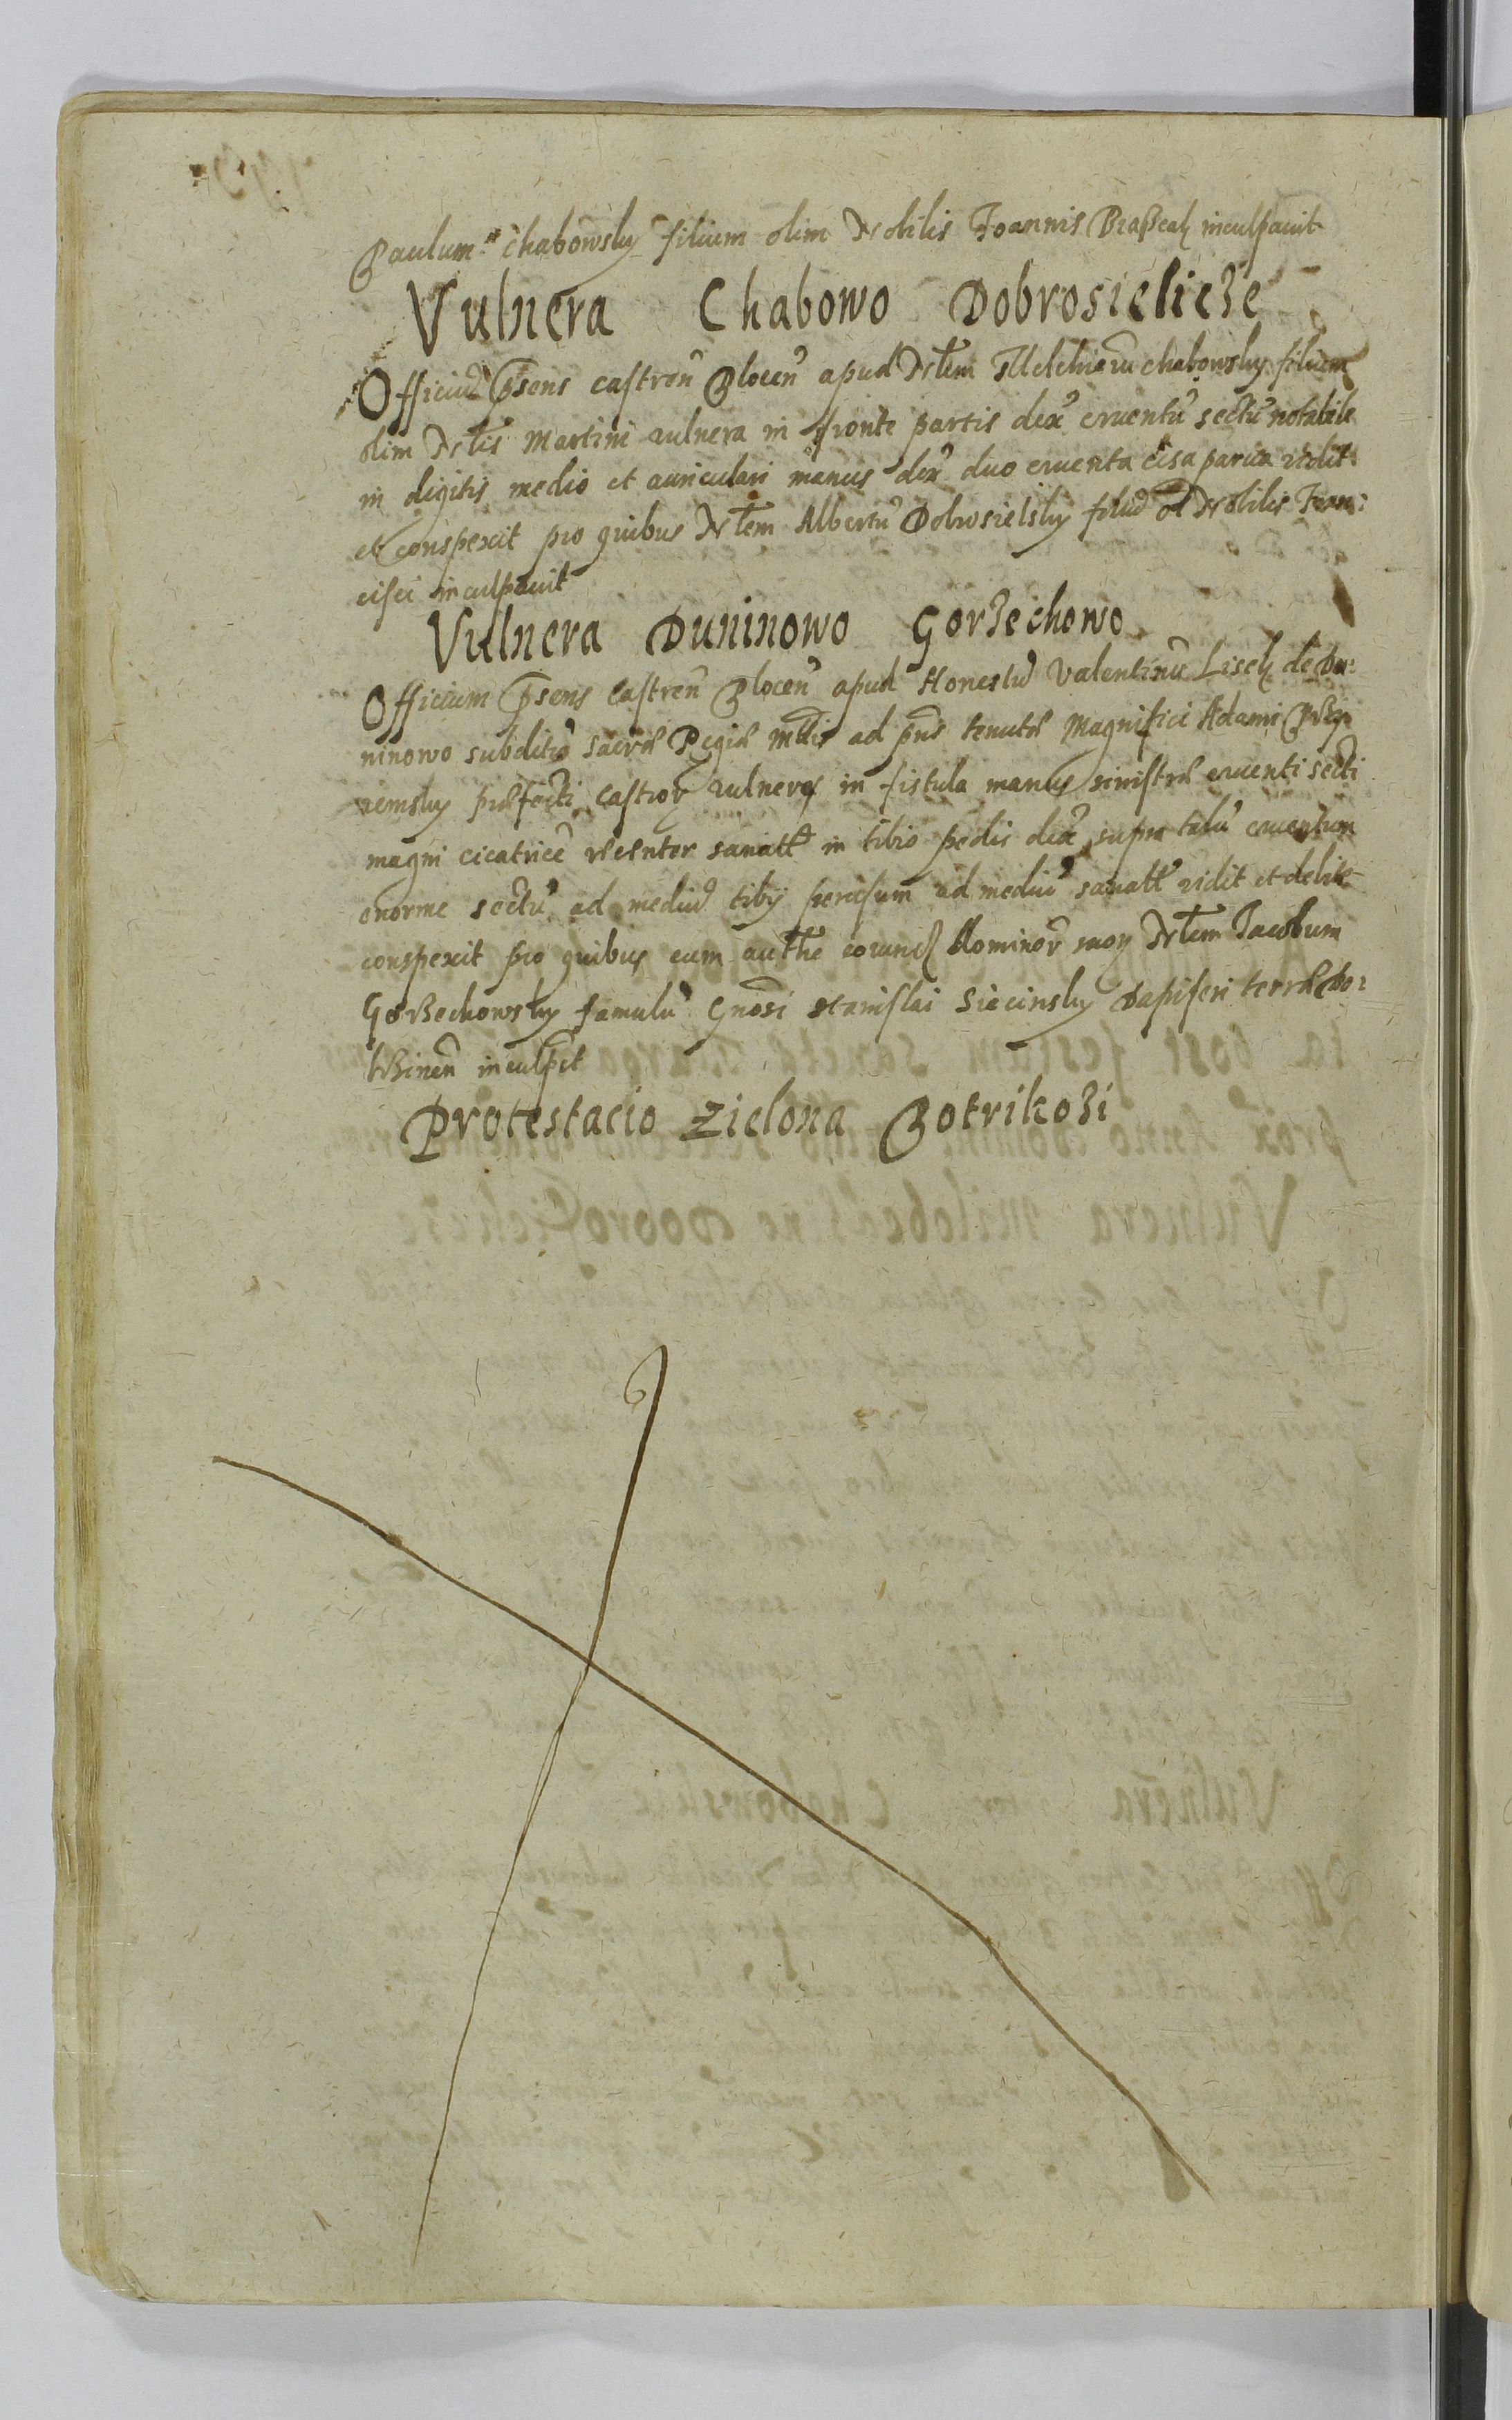 Paulum Chabowsky filium olim Nobilis Joannis inculpavit
Vulnera Chabowo Dobrosielicze
Officiũ Pñsens castreñ Plocen̄ apud Nłem Melchiarũ Chabowsky filium
olim Nłis Martini vulnera in fronte partis dex̃ cruentũ sectũ notabile
in digitis medio et auriculari manus dex̃ duo cruenta cisa parva vidit
et conspexit pro quibus Nłem Albertũ Dobrosielsky filiũ ol Nobilis Fran:
cisci inculpavit
Vulnera Duninowo Gorzechowo
Officium Pñsens Castreñ Plocen̄ apud Honestũ Valentinũ Lisek de Du:
ninowo subditũ Sacræ Regiæ Mttis ad pñs tenutæ Magnifici Adami
præfecti Castror vulnera in fistula manus sinistræ cruenti secti
magni cicatricẽ recenter sanatt in tibio pedis dex̃ supra talũ cruentum
enorme sectũ ad mediũ tibij percisum ad mediũ sanatt vidit et debite
conspexit pro quibus cum autthe eorund Dominor̃ suor Nłem Jacobum
Gorzechowsky famulũ Gnosi Stanislai Siecinsky Dapiferi terræ Do:
brzinen̄ inculpat
Protestacio Zielona Potrikozi